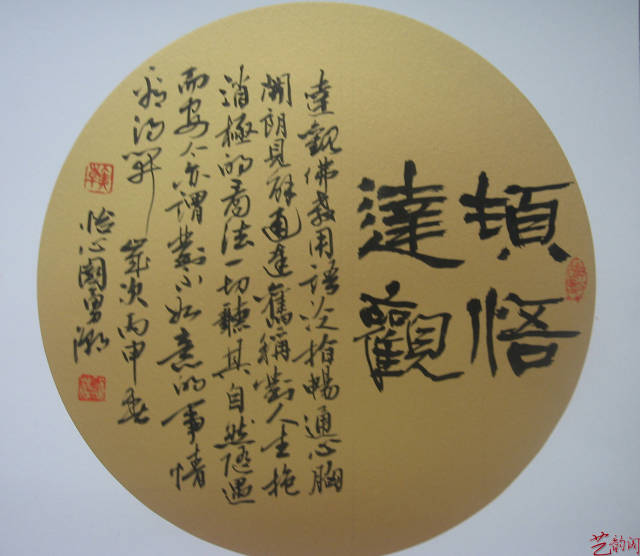 頓悟
達觀
達觀佛教用語泛指暢通心胸
開朗見解通達舊稱對人生抱
消極的看法一切聽其自然隨遇
而安今亦謂對不如意的事情
看得開
歲次丙申春
怡心
艺韵阁